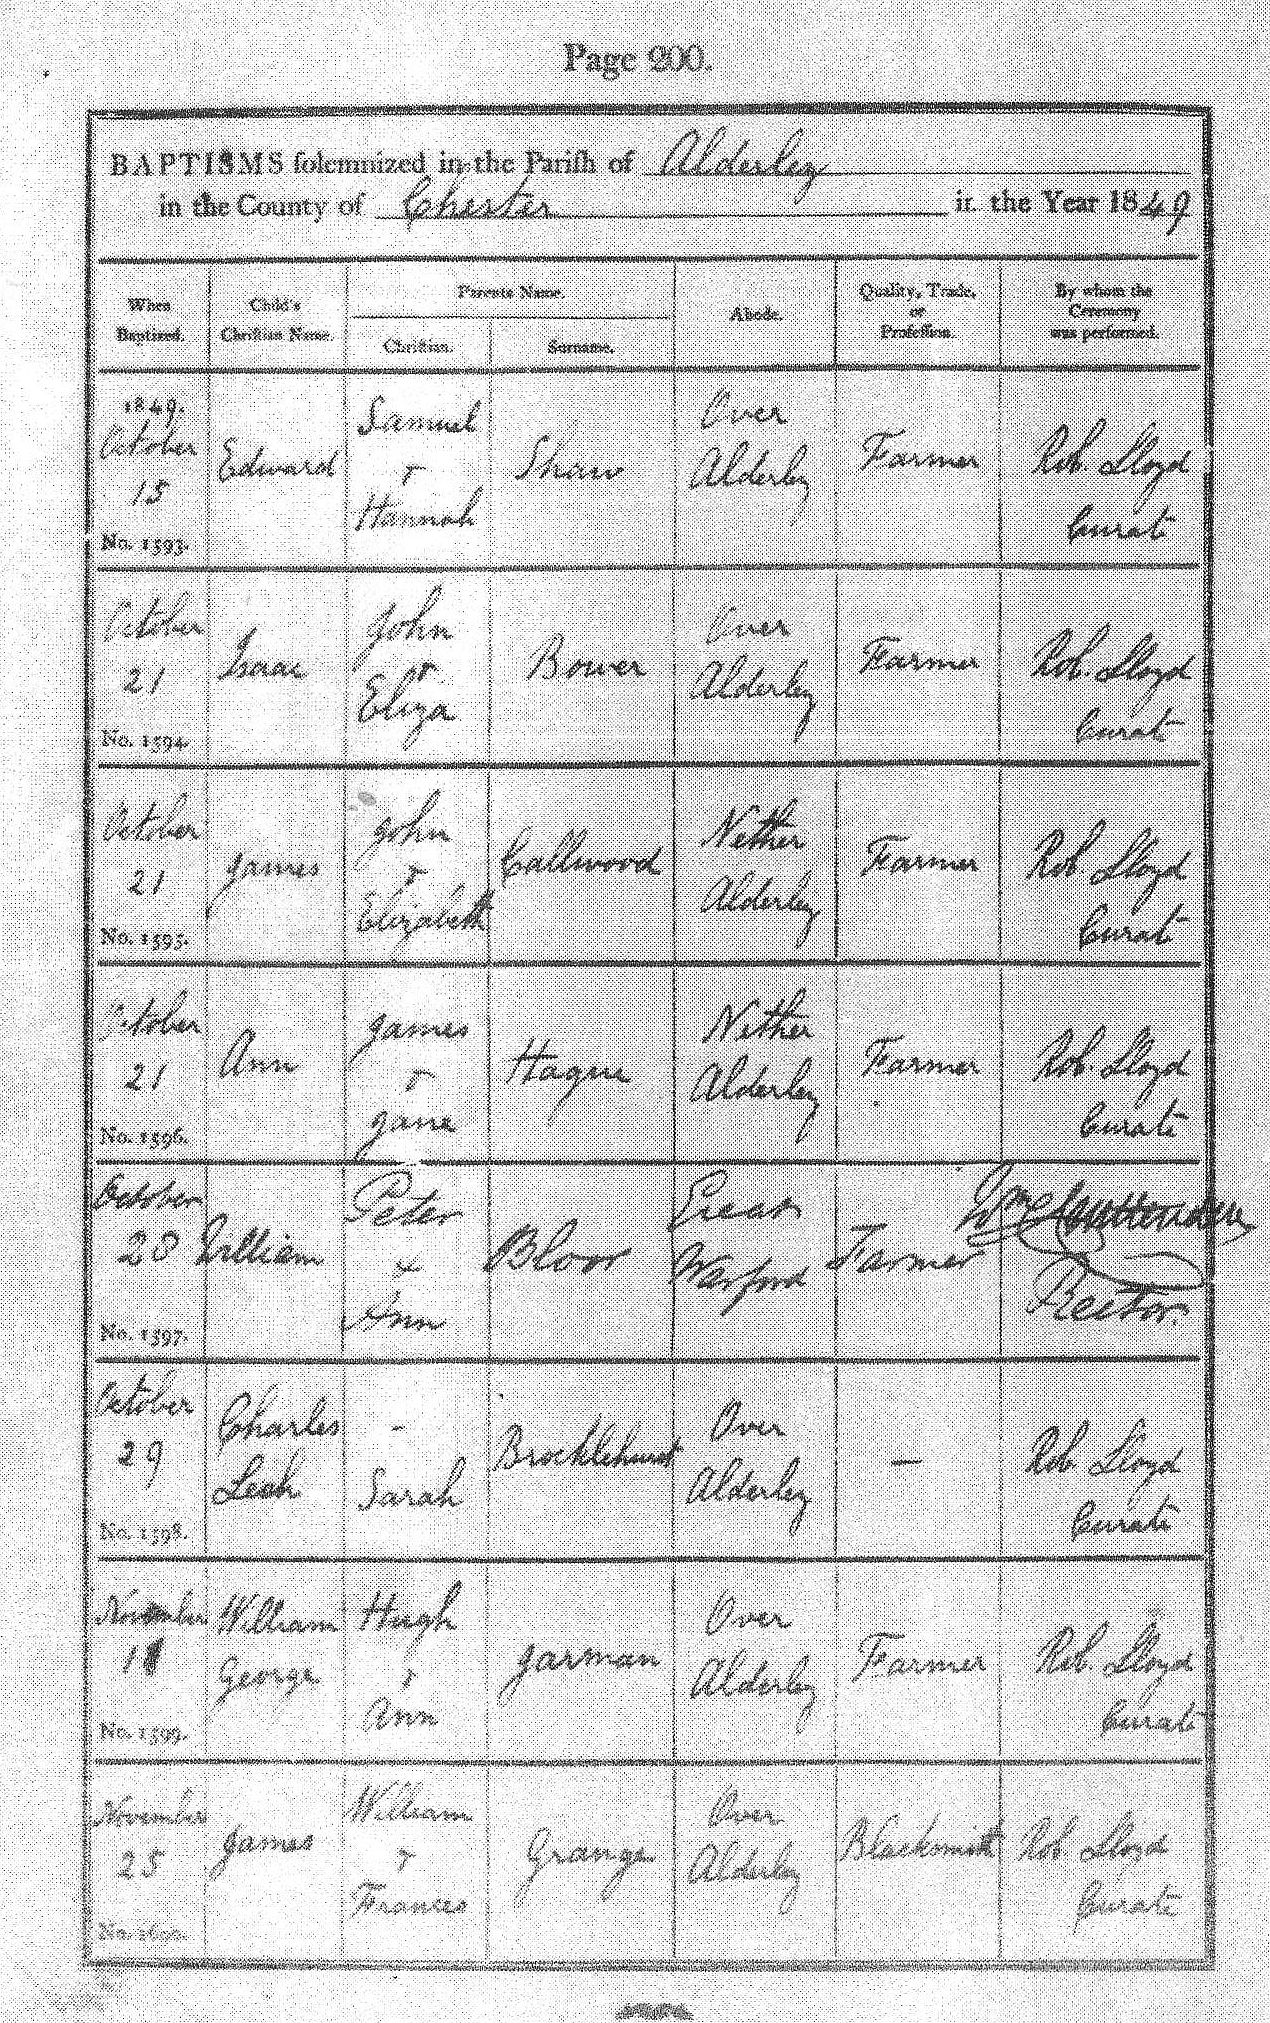 Page 200.
BAPTISMS solemnized in the Parish of Alderley
in the County of Chester in the Year 1849
When Baptized.
Child's Christian Name.
Parents Name.
Christian.
Surname.
Abode.
Quality, Trade, or Profession.
By whom the Ceremony was performed.
1849.
October
15
No. 1593.
Edward
Samuel
&
Hannah
Shaw
Over
Alderley
Farmer
Rob. Lloyd
Curate
October
21
No. 1594.
Isaac
John
&
Eliza
Bower
Over
Alderley
Farmer
Rob. Lloyd
Curate
October
21
No. 1595.
James
John
&
Elizabeth
Callwood
Nether
Alderley
Farmer
Rob. Lloyd
Curate
October
21
No. 1596.
Ann
James
&
Jane
Hague
Nether
Alderley
Farmer
Rob. Lloyd
Curate
October
28
No. 1597.
William
Peter
&
Ann
Bloor
Great
Warford
Farmer
Wm
Rector.
October
29
No. 1598.
Charles
Leah
-
Sarah
Brocklehurst
Over
Alderley
—
Rob. Lloyd
Curate
November
11
No. 1599.
William
George
Hugh
&
Ann
Jarman
Over
Alderley
Farmer
Rob. Lloyd
Curate
November
25
No. 1600.
James
William
&
Frances
Grange
Over
Alderley
Blacksmith
Rob Lloyd
Curate